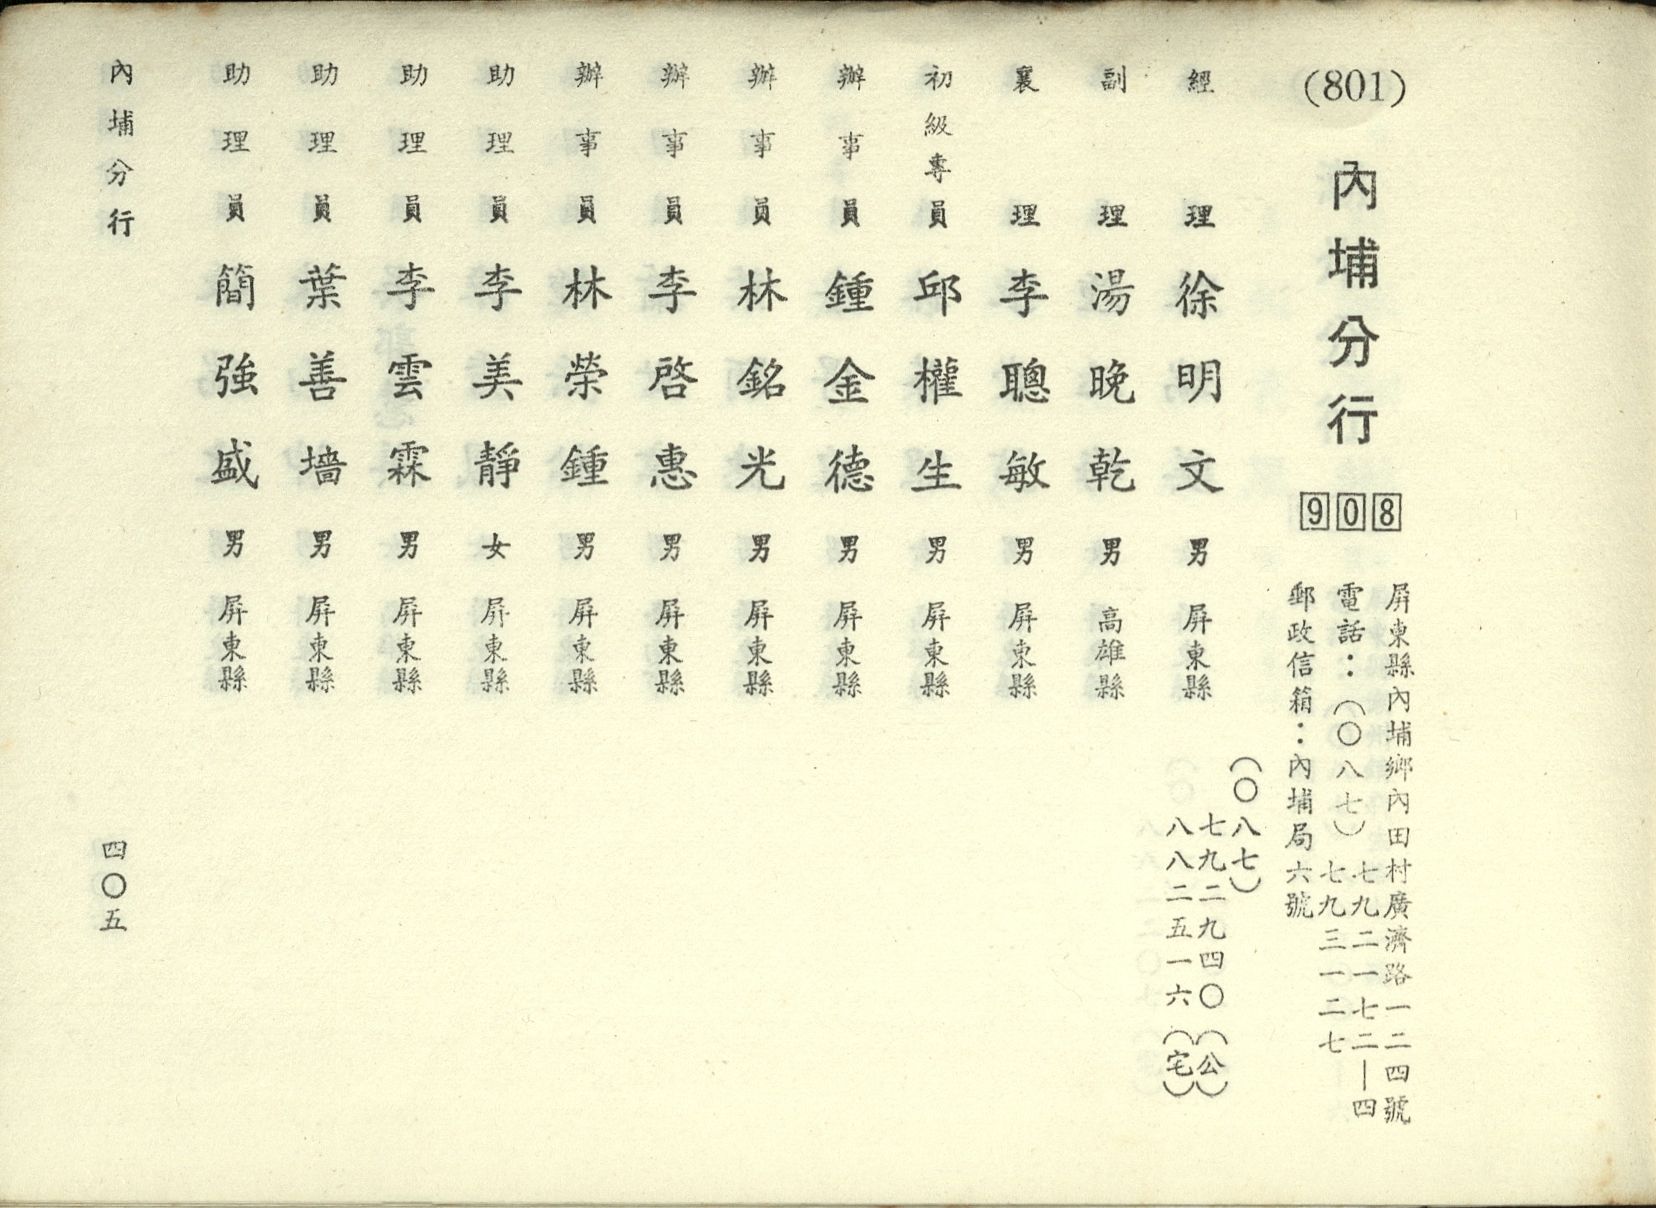 (801)
內埔分行
908
屏東縣內埔鄉內田村廣濟路一二四號
電話：(〇八七)七九二一七二—四
七九三一二七
郵政信箱：內埔局六號
經理 徐明文 男 屏東縣
(〇八七)
七九二九四〇(公)
八八二五一六(宅)
副理 湯晚乾 男 高雄縣
襄理 李聰敏 男 屏東縣
初級專員 邱權生 男 屏東縣
辦事員 鍾金德 男 屏東縣
辦事員 林銘光 男 屏東縣
辦事員 李啓惠 男 屏東縣
辦事員 林榮鍾 男 屏東縣
助理員 李美靜 女 屏東縣
助理員 李雲霖 男 屏東縣
助理員 葉善墻 男 屏東縣
助理員 簡強盛 男 屏東縣
內埔分行
四〇五